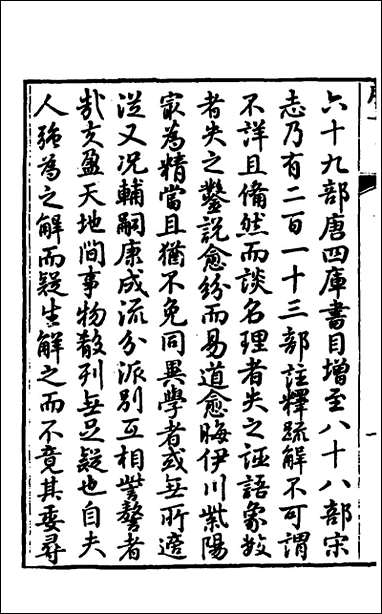 六十九部唐四庫書目增至八十八部宋
志乃有二百一十三部註釋疏解不可謂
不詳且備然而談名理者失之誣語象數
者失之鑿說愈紛而易道愈晦伊川紫陽
冣為精當且猶不免同異學者或無所適
從又況輔嗣康成流分派別互相訾謷者
哉夫盈天地間事物散列無足疑也自夫
人強為之解而疑生解之而不竟其委尋